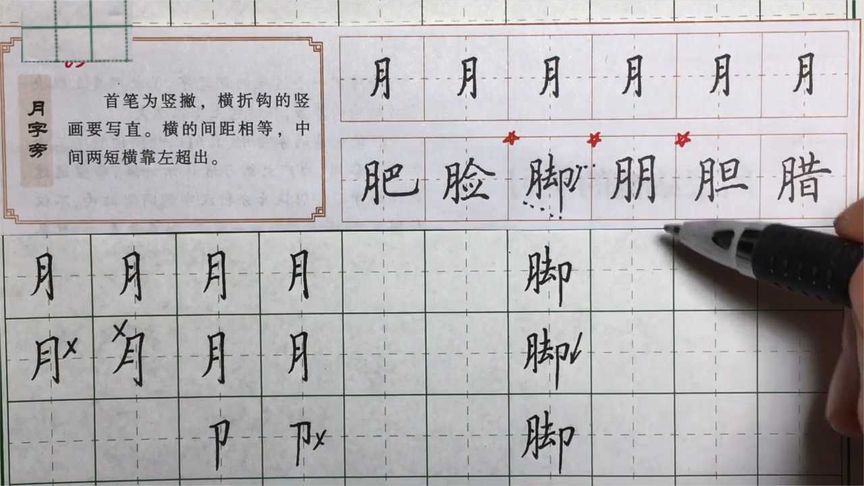 月字旁
首笔为竖撇，横折钩的竖
画要写直。横的间距相等，中
间两短横靠左超出。
月 月 月 月 月 月
肥 脸 脚 朋 胆 腊
月 月 月 月 脚
月 x 月 x 月 月 脚
卩 卩 x 脚